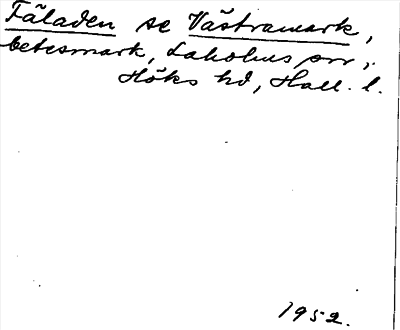 Fäladen se Västramark,
betesmark, Laholms sn,
Höks hd, Hall. l.
1952.